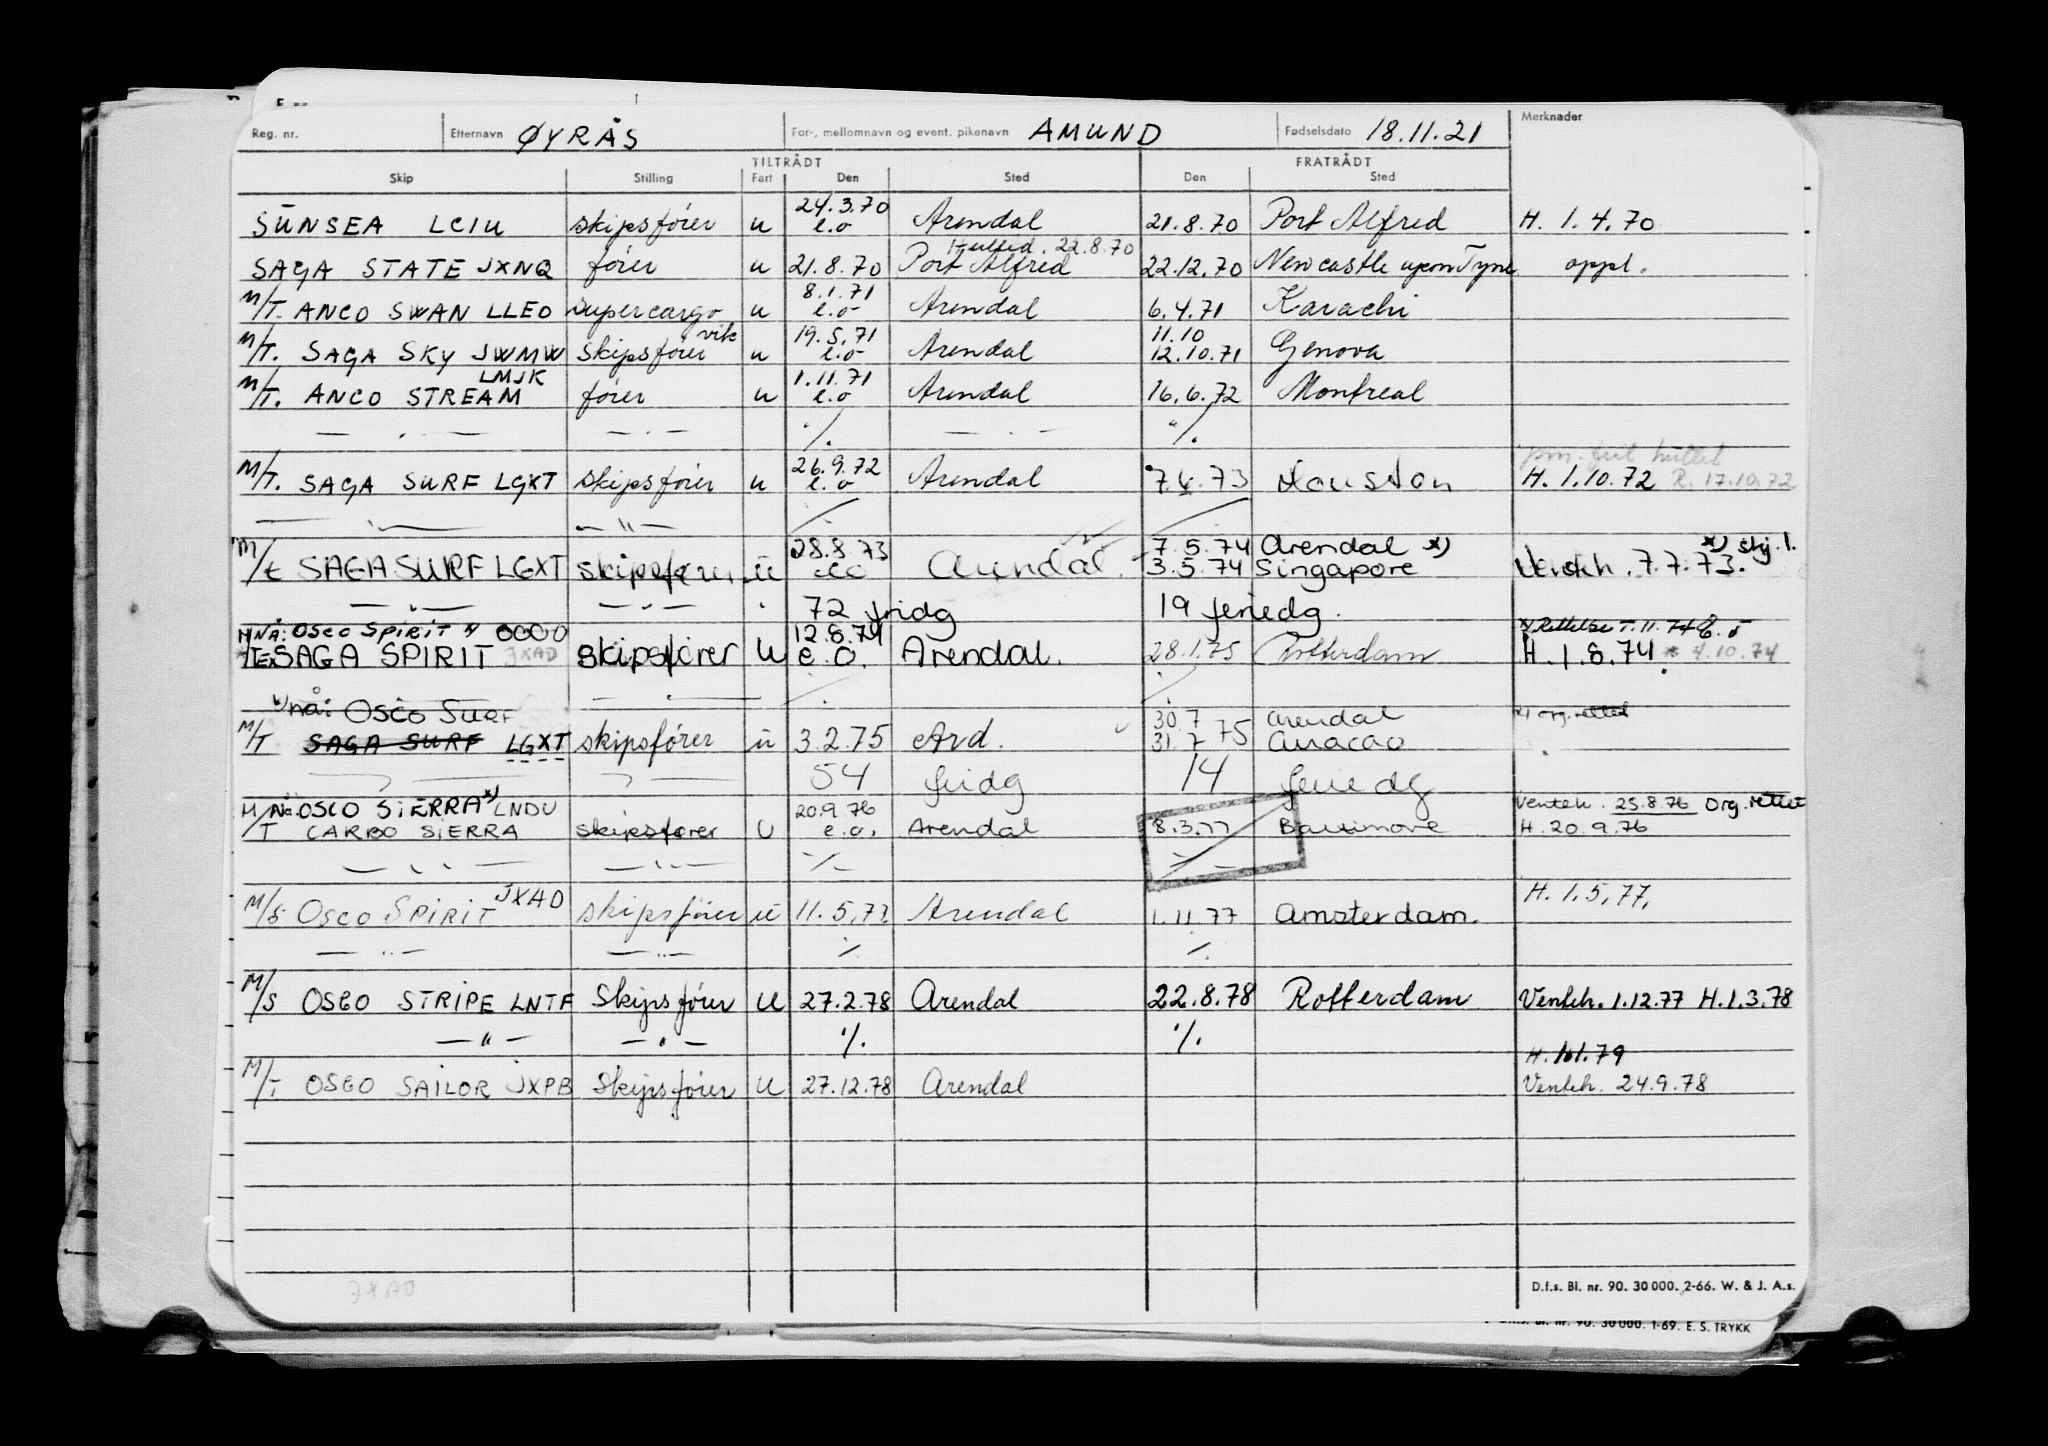 Reg. nr. Etternavn ØYRÅS For-, mellomnavn og event. pikenavn AMUND Fødselsdato 18.11.21 Merknader
TILTRÅDT FRATRÅDT
Skip Stilling Fart Den Sted Den Sted
24.3.70
SUNSEA LCIU skipsfører u e.o Arendal 21.8.70 Port Alfred H. 1.4.70
Hutted. 22.8.70
SAGA STATE JXNQ fører u 21.8.70 Port Alfred 22.12.70 Newcastle upon Tyne oppl.
8.1.71
M/T. ANCO SWAN LLEO Supercargo u e.o Arendal 6.4.71 Karachi
vik 19.5.71 11.10
M/T. SAGA SKY JWMW Skipsfører u e.o Arendal 12.10.71 Genova
LMJK 1.11.71
M/T. ANCO STREAM fører u e.o Arendal 16.6.72 Montreal
— " — — " — ·/. — " — ·/.
26.9.72
M/T. SAGA SURF LGXT skipsfører u e.o Arendal 7.4.73 Houston H. 1.10.72 R. 17.10.72
— " — — " — ·/.
28.8.73 7.5.74 Arendal x) x) skj. 1.
M/t SAGA SURF LGXT skipsfører u e.o Arendal 3.5.74 Singapore Venteh. 7.7.73.
— " — — " — " 72 fridg 19 feriedg.
NÅ: OSCO SPIRIT 12.8.74 Rettelse
M/T Ex SAGA SPIRIT JXAD skipsfører U e.o. Arendal. 28.1.75 Rotterdam H. 1.8.74 * 4.10.74
— " —
nå: OSCO SURF 30.7 Arendal x) org. rettet
M/T SAGA SURF LGXT skipsfører u 3.2.75 Ard. 31.7 75 Curacao
54 fridg 14 feriedg
Nå: OSCO SIERRA x) LNDU 20.9.76 Venteh. 25.8.76 Org. rettet
M/T CARBO SIERRA skipsfører U e.o. Arendal 8.3.77 Baltimore H. 20.9.76
— " — — " — ·/. ·/.
JXAD H. 1.5.77.
M/S OSCO SPIRIT skipsfører u 11.5.77 Arendal 1.11.77 Amsterdam.
— " — — " — ·/. ·/.
M/S OSCO STRIPE LNTF Skipsfører U 27.2.78 Arendal 22.8.78 Rotterdam Venteh. 1.12.77 H.1.3.78
— " — — " — ·/. ·/.
H. 1.1.79
M/T OSCO SAILOR JXPB Skipsfører U 27.12.78 Arendal Venteh. 24.9.78
JXAD
D.f.s. Bl. nr. 90. 30 000. 2-66. W. & J. A.s.
Bl. nr. 90. 30 000. 1-69. E. S. TRYKK